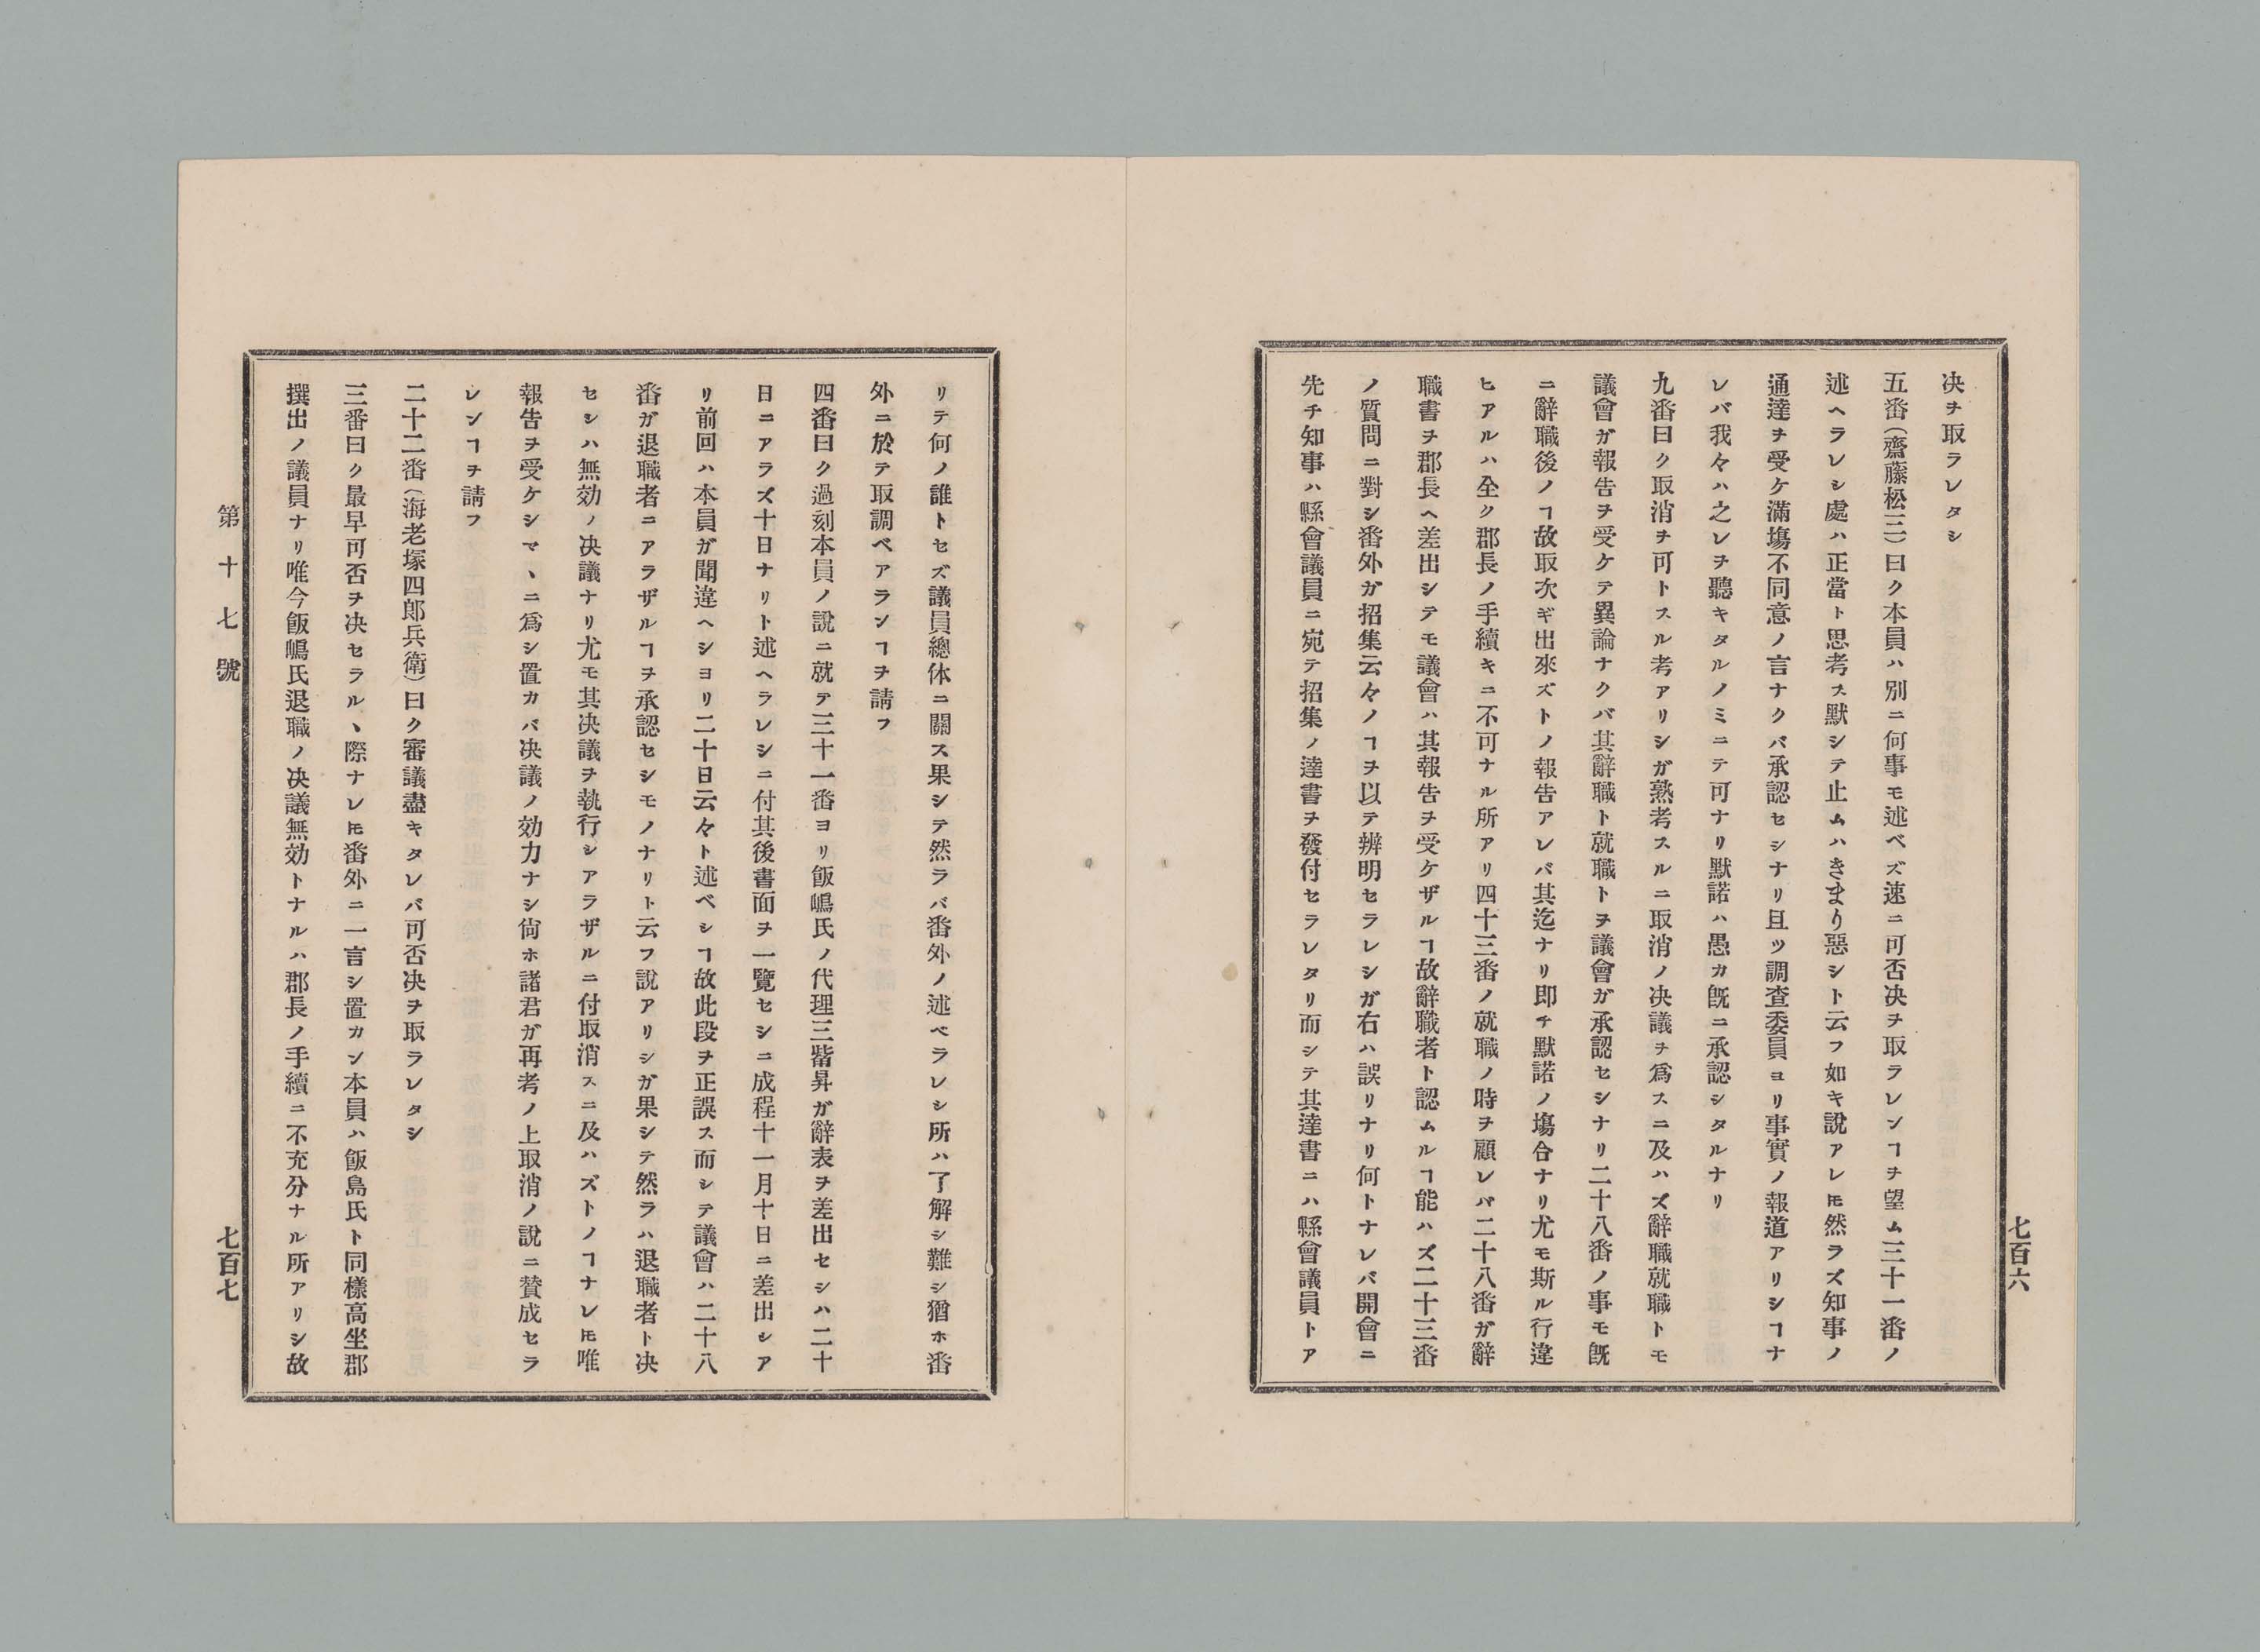 七百六
决ヲ取ラレタシ
五番(齋藤松三)曰ク本員ハ別ニ何事モ述ベズ速ニ可否决ヲ取ラレンヿヲ望ム三十一番ノ
述ヘラレシ處ハ正當ト思考ス默シテ止ムハきまり惡シト云フ如キ說アレ𪜈然ラズ知事ノ
通達ヲ受ケ滿塲不同意ノ言ナクバ承認セシナリ且ツ調査委員ヨリ事實ノ報道アリシヿナ
レバ我々ハ之レヲ聽キタルノミニテ可ナリ默諾ハ愚カ旣ニ承認シタルナリ
九番曰ク取消ヲ可トスル考アリシガ熟考スルニ取消ノ决議ヲ爲スニ及ハズ辭職就職トモ
議會ガ報告ヲ受ケテ異論ナクバ其辭職ト就職トヲ議會ガ承認セシナリ二十八番ノ事モ旣
ニ辭職後ノヿ故取次ギ出來ズトノ報告アレバ其迄ナリ即チ默諾ノ塲合ナリ尤モ斯ル行違
ヒアルハ全ク郡長ノ手續キニ不可ナル所アリ四十三番ノ就職ノ時ヲ顧レバ二十八番ガ辭
職書ヲ郡長ヘ差出シテモ議會ハ其報告ヲ受ケザルヿ故辭職者ト認ムルヿ能ハズ二十三番
ノ質問ニ對シ番外ガ招集云々ノヿヲ以テ辨明セラレシガ右ハ誤リナリ何トナレバ開會ニ
先チ知事ハ縣會議員ニ宛テ招集ノ達書ヲ發付セラレタリ而シテ其達書ニハ縣會議員トア
リテ何ノ誰トセズ議員總体ニ關ス果シテ然ラバ番外ノ述ベラレシ所ハ了解シ難シ猶ホ番
外ニ於テ取調ベアランヿヲ請フ
四番曰ク過刻本員ノ說ニ就テ三十一番ヨリ飯嶋氏ノ代理三觜昇ガ辭表ヲ差出セシハ二十
日ニアラズ十日ナリト述ヘラレシニ付其後書面ヲ一覽セシニ成程十一月十日ニ差出シア
リ前回ハ本員ガ聞違ヘシヨリ二十日云々ト述ベシヿ故此段ヲ正誤ス而シテ議會ハ二十八
番ガ退職者ニアラザルヿヲ承認セシモノナリト云フ說アリシガ果シテ然ラハ退職者ト决
セシハ無効ノ决議ナリ尤モ其决議ヲ執行シアラザルニ付取消スニ及ハズトノヿナレ𪜈唯
報告ヲ受ケシマヽニ爲シ置カバ决議ノ効力ナシ尙ホ諸君ガ再考ノ上取消ノ說ニ賛成セラ
レンヿヲ請フ
二十二番(海老塚四郎兵衛)曰ク審議盡キタレバ可否决ヲ取ラレタシ
三番曰ク最早可否ヲ决セラルヽ際ナレ𪜈番外ニ一言シ置カン本員ハ飯島氏ト同樣高坐郡
撰出ノ議員ナリ唯今飯嶋氏退職ノ决議無効トナルハ郡長ノ手續ニ不充分ナル所アリシ故
第十七號
七百七